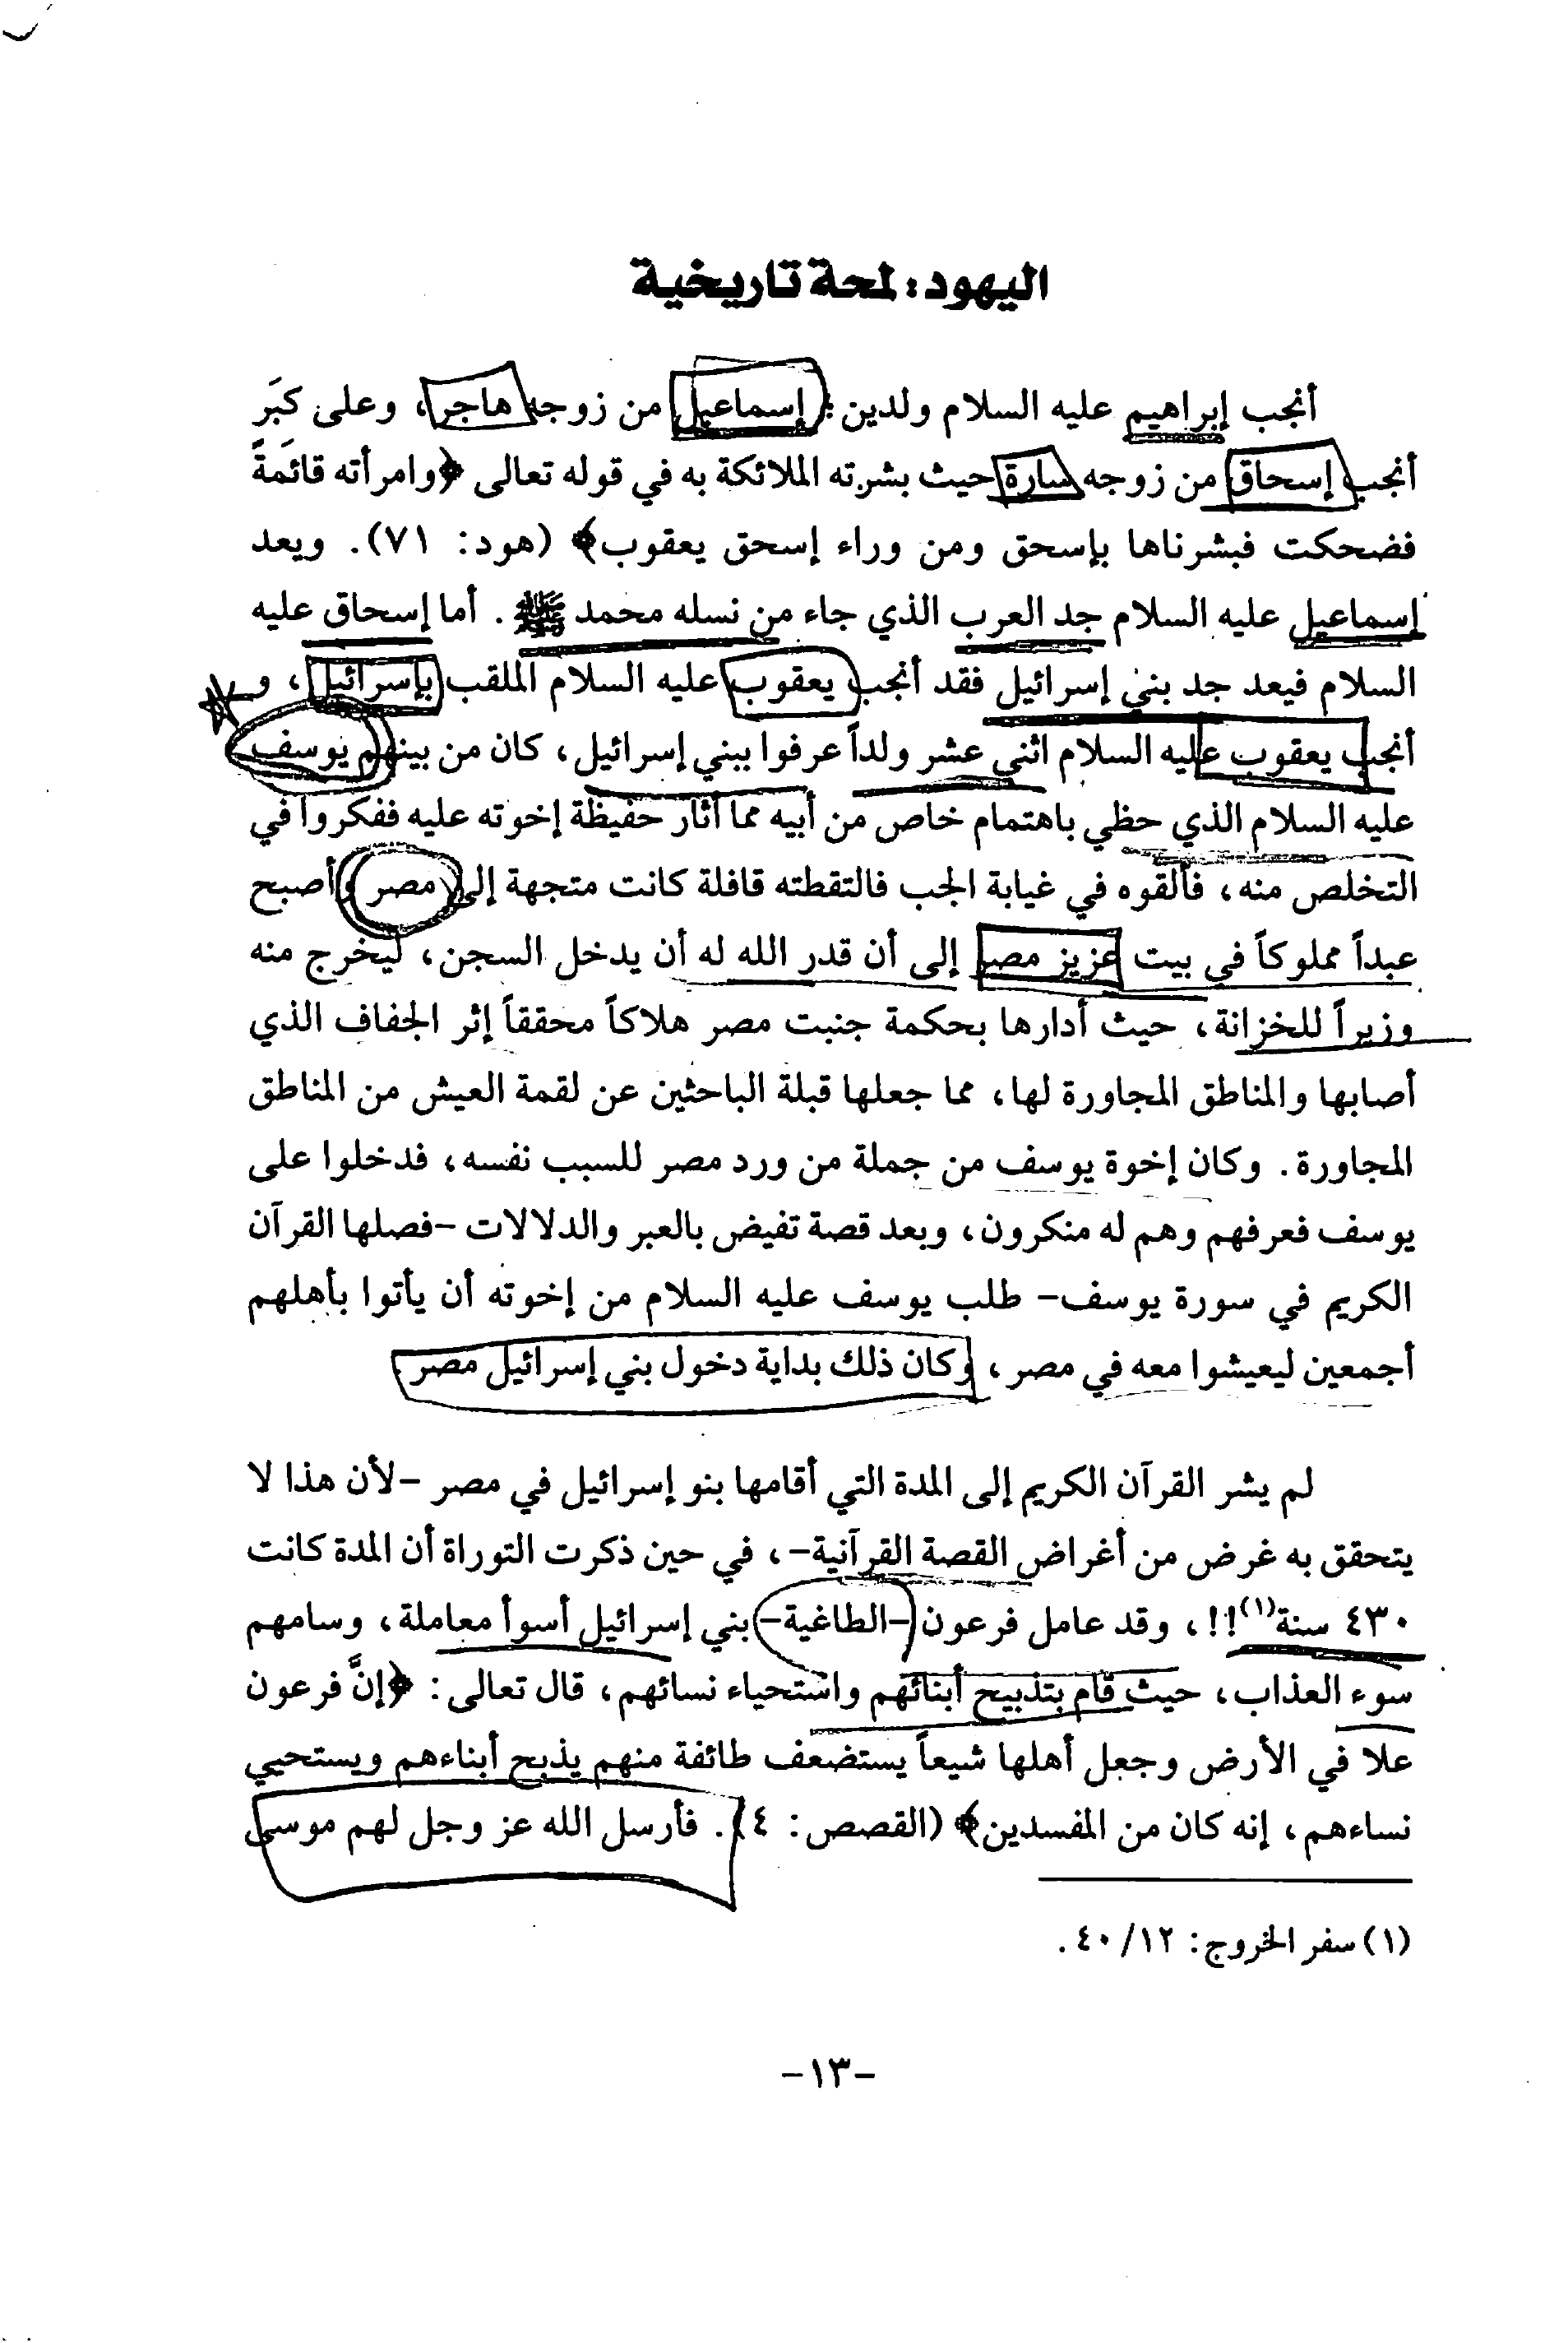 اليهود: لمحة تاريخية
أنجب إبراهيم عليه السلام ولدين: إسماعيل من زوجه هاجر، وعلى كَبَر
أنجب إسحاق من زوجه سارة حيث بشرته الملائكة به في قوله تعالى ﴿وامرأته قائمَةً
فضحكت فبشرناها بإسحق ومن وراء إسحق يعقوب﴾ (هود: ٧١). ويعد
إسماعيل عليه السلام جد العرب الذي جاء من نسله محمد ﷺ. أما إسحاق عليه
السلام فيعد جد بني إسرائيل فقد أنجب يعقوب عليه السلام الملقب بإسرائيل، و
أنجب يعقوب عليه السلام اثني عشر ولداً عرفوا ببني إسرائيل، كان من بينهم يوسف
عليه السلام الذي حظي باهتمام خاص من أبيه مما أثار حفيظة إخوته عليه ففكروا في
التخلص منه، فألقوه في غيابة الجب فالتقطته قافلة كانت متجهة إلى مصر وأصبح
عبداً مملوكاً في بيت عزيز مصر إلى أن قدر الله له أن يدخل السجن، ليخرج منه
وزيراً للخزانة، حيث أدارها بحكمة جنبت مصر هلاكاً محققاً إثر الجفاف الذي
أصابها والمناطق المجاورة لها، مما جعلها قبلة الباحثين عن لقمة العيش من المناطق
المجاورة. وكان إخوة يوسف من جملة من ورد مصر للسبب نفسه، فدخلوا على
يوسف فعرفهم وهم له منكرون، وبعد قصة تفيض بالعبر والدلالات -فصلها القرآن
الكريم في سورة يوسف- طلب يوسف عليه السلام من إخوته أن يأتوا بأهلهم
أجمعين ليعيشوا معه في مصر، وكان ذلك بداية دخول بني إسرائيل مصر
لم يشر القرآن الكريم إلى المدة التي أقامها بنو إسرائيل في مصر -لأن هذا لا
يتحقق به غرض من أغراض القصة القرآنية-، في حين ذكرت التوراة أن المدة كانت
٤٣٠ سنة(١)!!، وقد عامل فرعون -الطاغية- بني إسرائيل أسوأ معاملة، وسامهم
سوء العذاب، حيث قام بتذبيح أبنائهم واستحياء نسائهم، قال تعالى: ﴿إنَّ فرعون
علا في الأرض وجعل أهلها شيعاً يستضعف طائفة منهم يذبح أبناءهم ويستحيي
نساءهم، إنه كان من المفسدين﴾ (القصص: ٤). فأرسل الله عز وجل لهم موسى
(١) سفر الخروج: ٤٠/١٢.
-١٣-